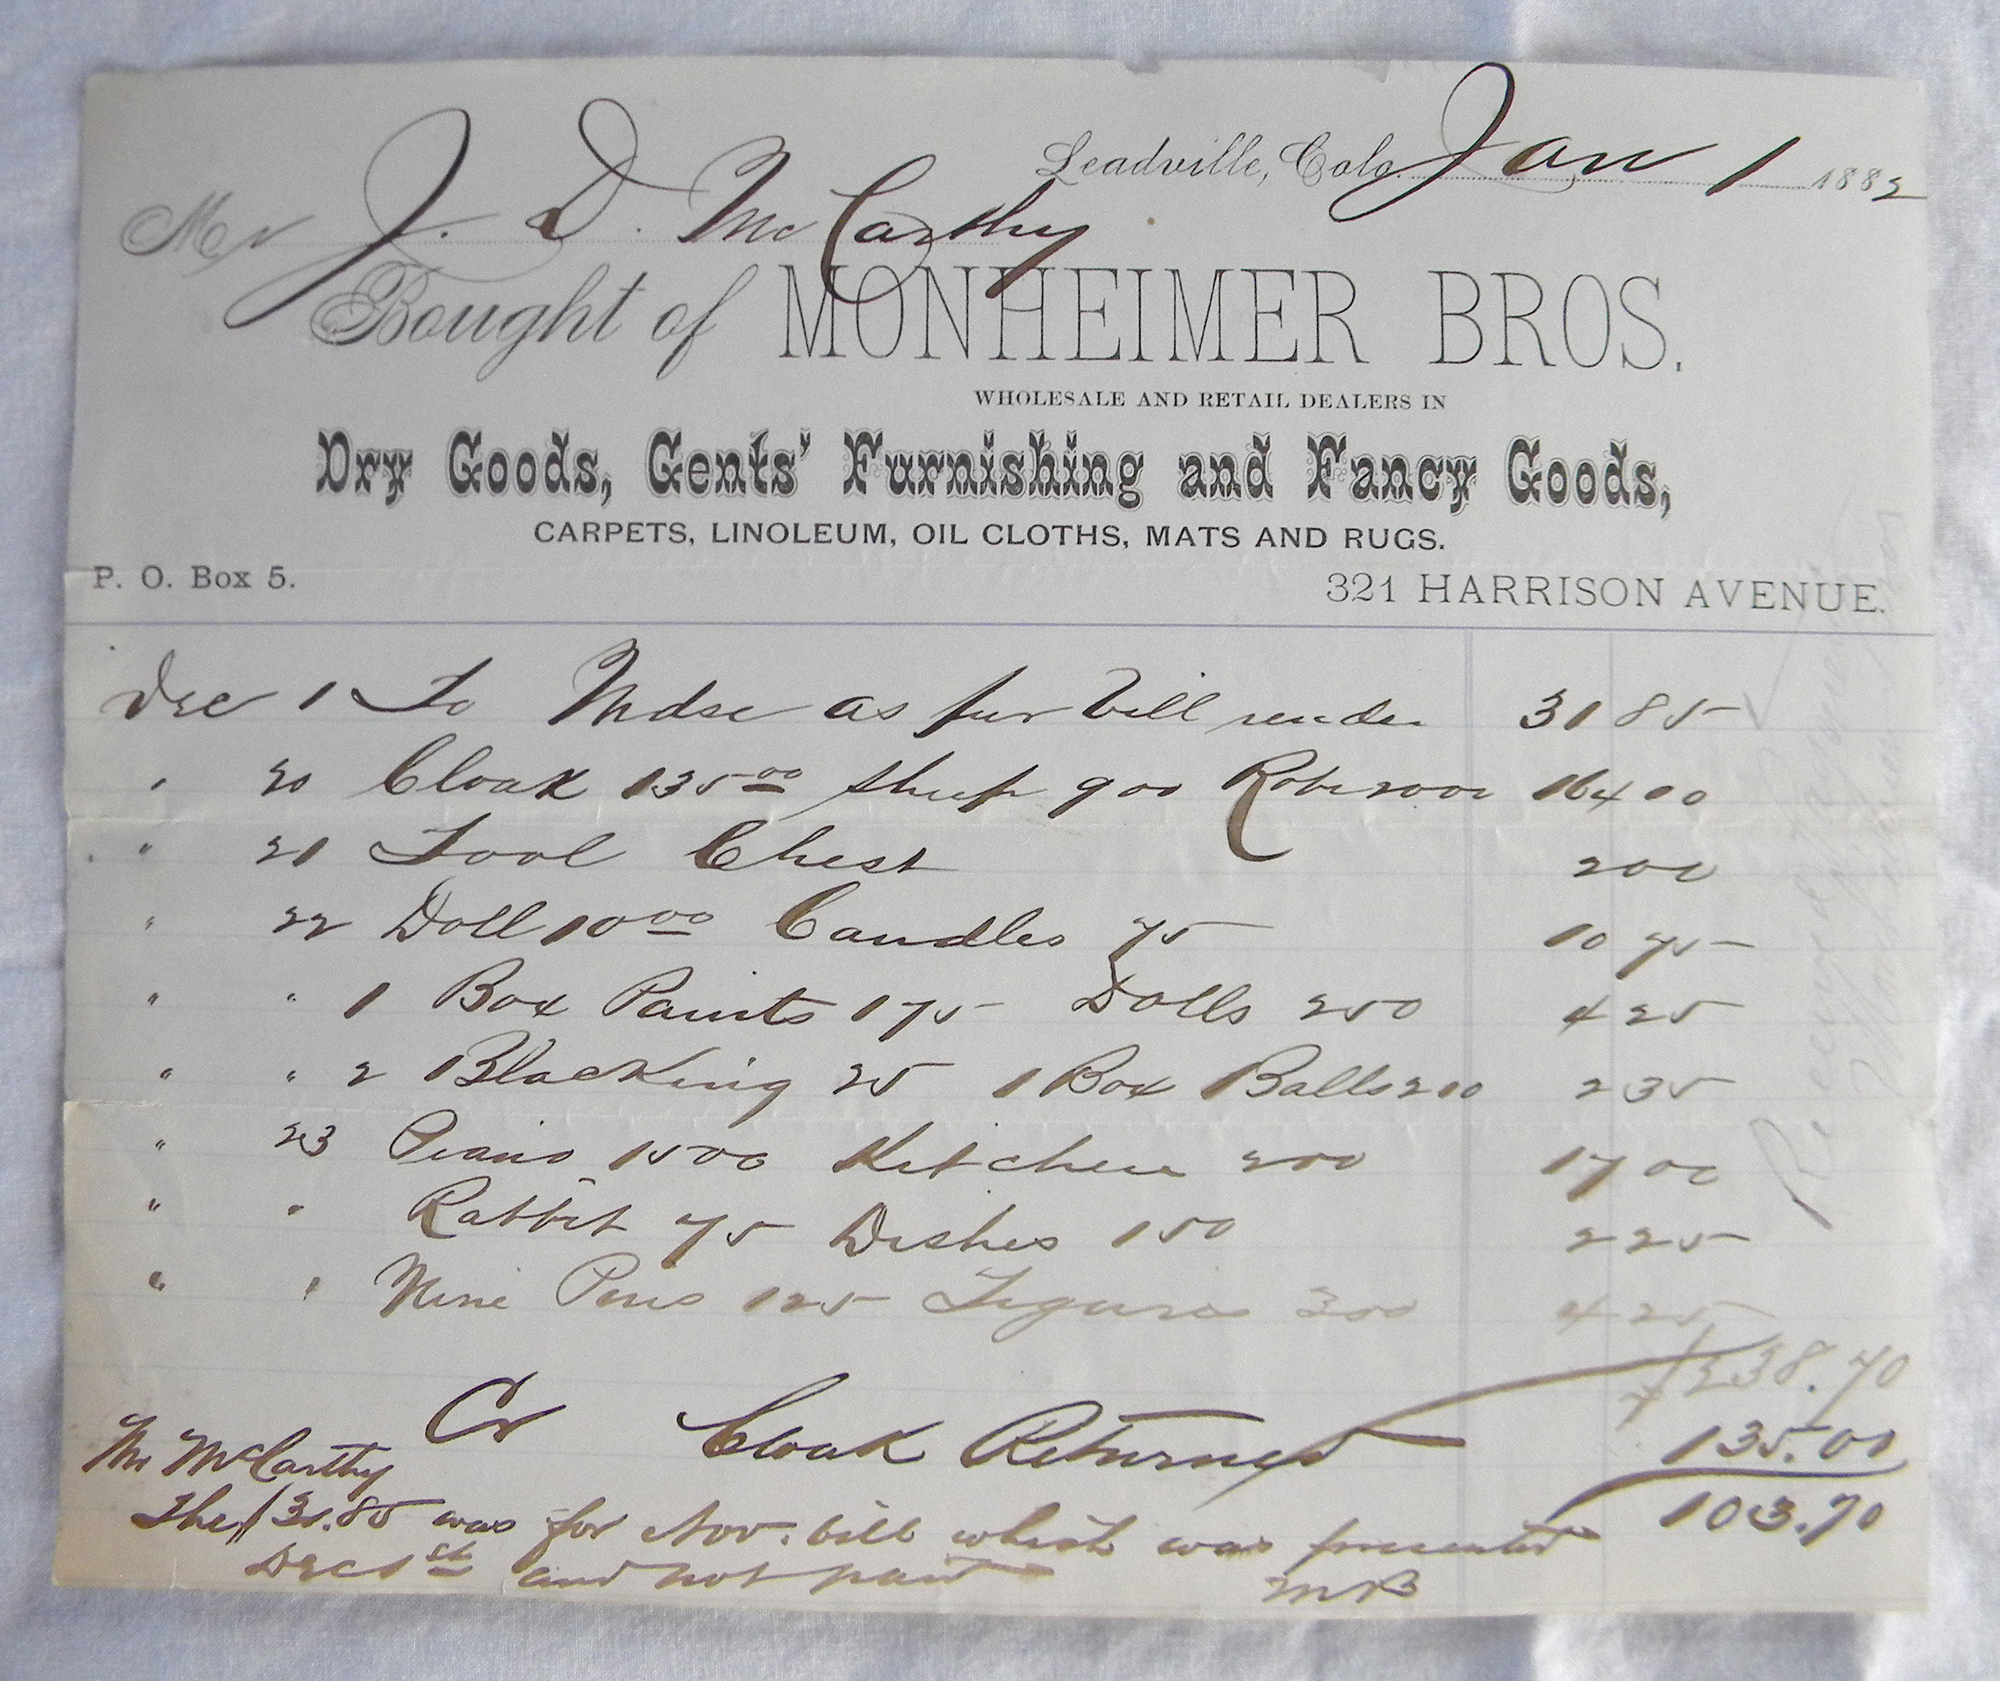 Leadville, Colo. Jan 1 1882
Mr J. D. McCarthy
Bought of MONHEIMER BROS.
WHOLESALE AND RETAIL DEALERS IN
Dry Goods, Gents' Furnishing and Fancy Goods,
CARPETS, LINOLEUM, OIL CLOTHS, MATS AND RUGS.
P. O. Box 5. 321 HARRISON AVENUE.
Dec 1 To Mdse as per bill render 31 85
" 20 Cloak 135 00 Sheep 9 00 Robe 20 00 164 00
" 21 Tool Chest 2 00
" 22 Doll 10 00 Candles 75 10 75
" " 1 Box Paints 1 75 Dolls 2 50 4 25
" " 2 Blacking 25 1 Box Balls 2 10 2 35
" 23 Piano 15 00 Kitchen 2 00 17 00
" " Rabbit 75 Dishes 1 50 2 25
" " Nine Pins 1 25 Figures 3 00 4 25
$238.70
Cr Cloak Returned 135.00
103.70
Mr McCarthy
The $31.85 was for Nov. bill which was presented
Dec 1st and not paid MB